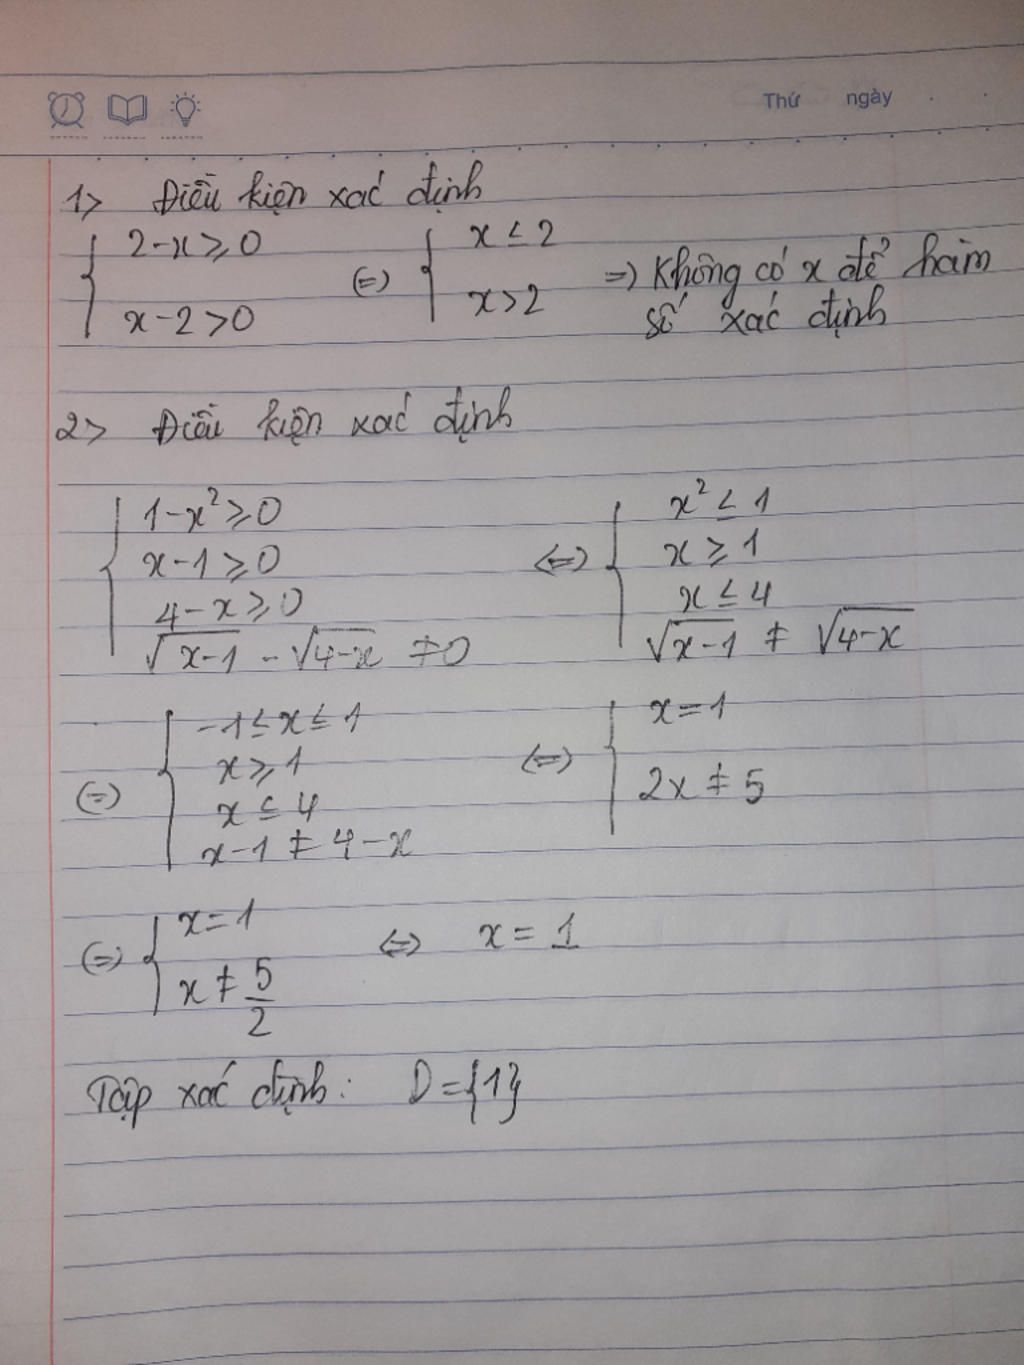 Thứ ngày
1> Điều kiện xác định
{ 2-x ≥ 0 (=) { x ≤ 2
x-2 > 0 x > 2 =) Không có x để hàm
số xác định
2> Điều kiện xác định
{ 1-x² ≥ 0 <=> { x² ≤ 1
x-1 ≥ 0 x ≥ 1
4-x ≥ 0 x ≤ 4
√x-1 - √4-x ≠ 0 √x-1 ≠ √4-x
(=) { -1 ≤ x ≤ 1 <=> { x = 1
x ≥ 1 2x ≠ 5
x ≤ 4
x-1 ≠ 4-x
(=) { x = 1 <=> x = 1
x ≠ 5/2
Tập xác định: D = {1}